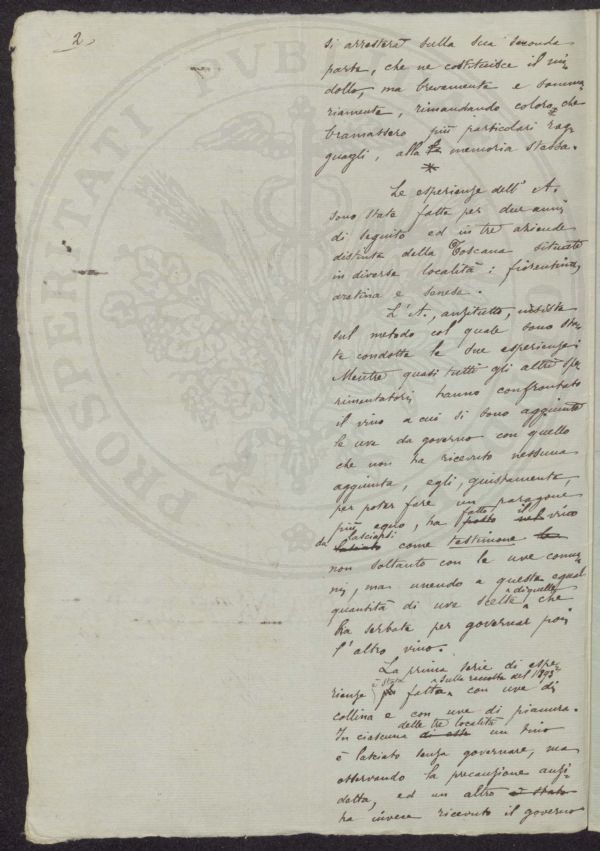 2
si arresterà sulla sua seconda
parte, che ne costituisce il mi-
dollo, ma brevemente e somma-
riamente, rimandando coloro che
bramassero più particolari rag-
guagli, alla memoria stessa.
*
Le esperienze dell' A.
sono state fatte per due anni
di seguito ed in tre aziende
distinte della Toscana situate
in diverse località: fiorentina,
aretina e senese.
L'A., anzitutto, insiste
sul metodo col quale sono sta-
te condotte le sue esperienze:
Mentre quasi tutti gli altri spe-
rimentatori, hanno confrontato
il vino a cui si sono aggiunte
le uve da governo con quello
che non ha ricevuto nessuna
aggiunta, egli, giustamente,
per poter fare un paragone
più equo, ha fatto il vino
da lasciarsi come testimone
non soltanto con le uve comu-
ni, ma unendo a queste egual
quantità di uve scelte di quelle che
ha serbate per governar poi
l'altro vino.
La prima serie di espe-
rienze è stata fatta sulle raccolte del 1893 con uve di
collina e con uve di pianura.
In ciascuna delle tre località un vino
è lasciato senza governare, ma
osservando la precauzione anzi-
detta, ed un altro
ha invece ricevuto il governo
PROSPERITATI PUBLICAE